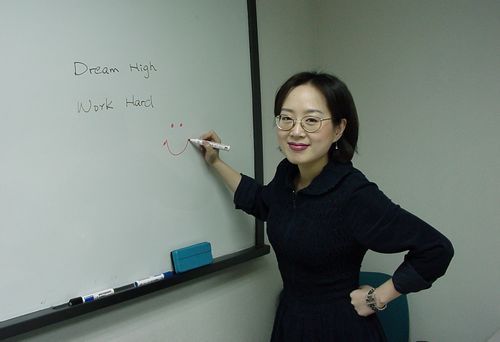 Dream High
Work Hard